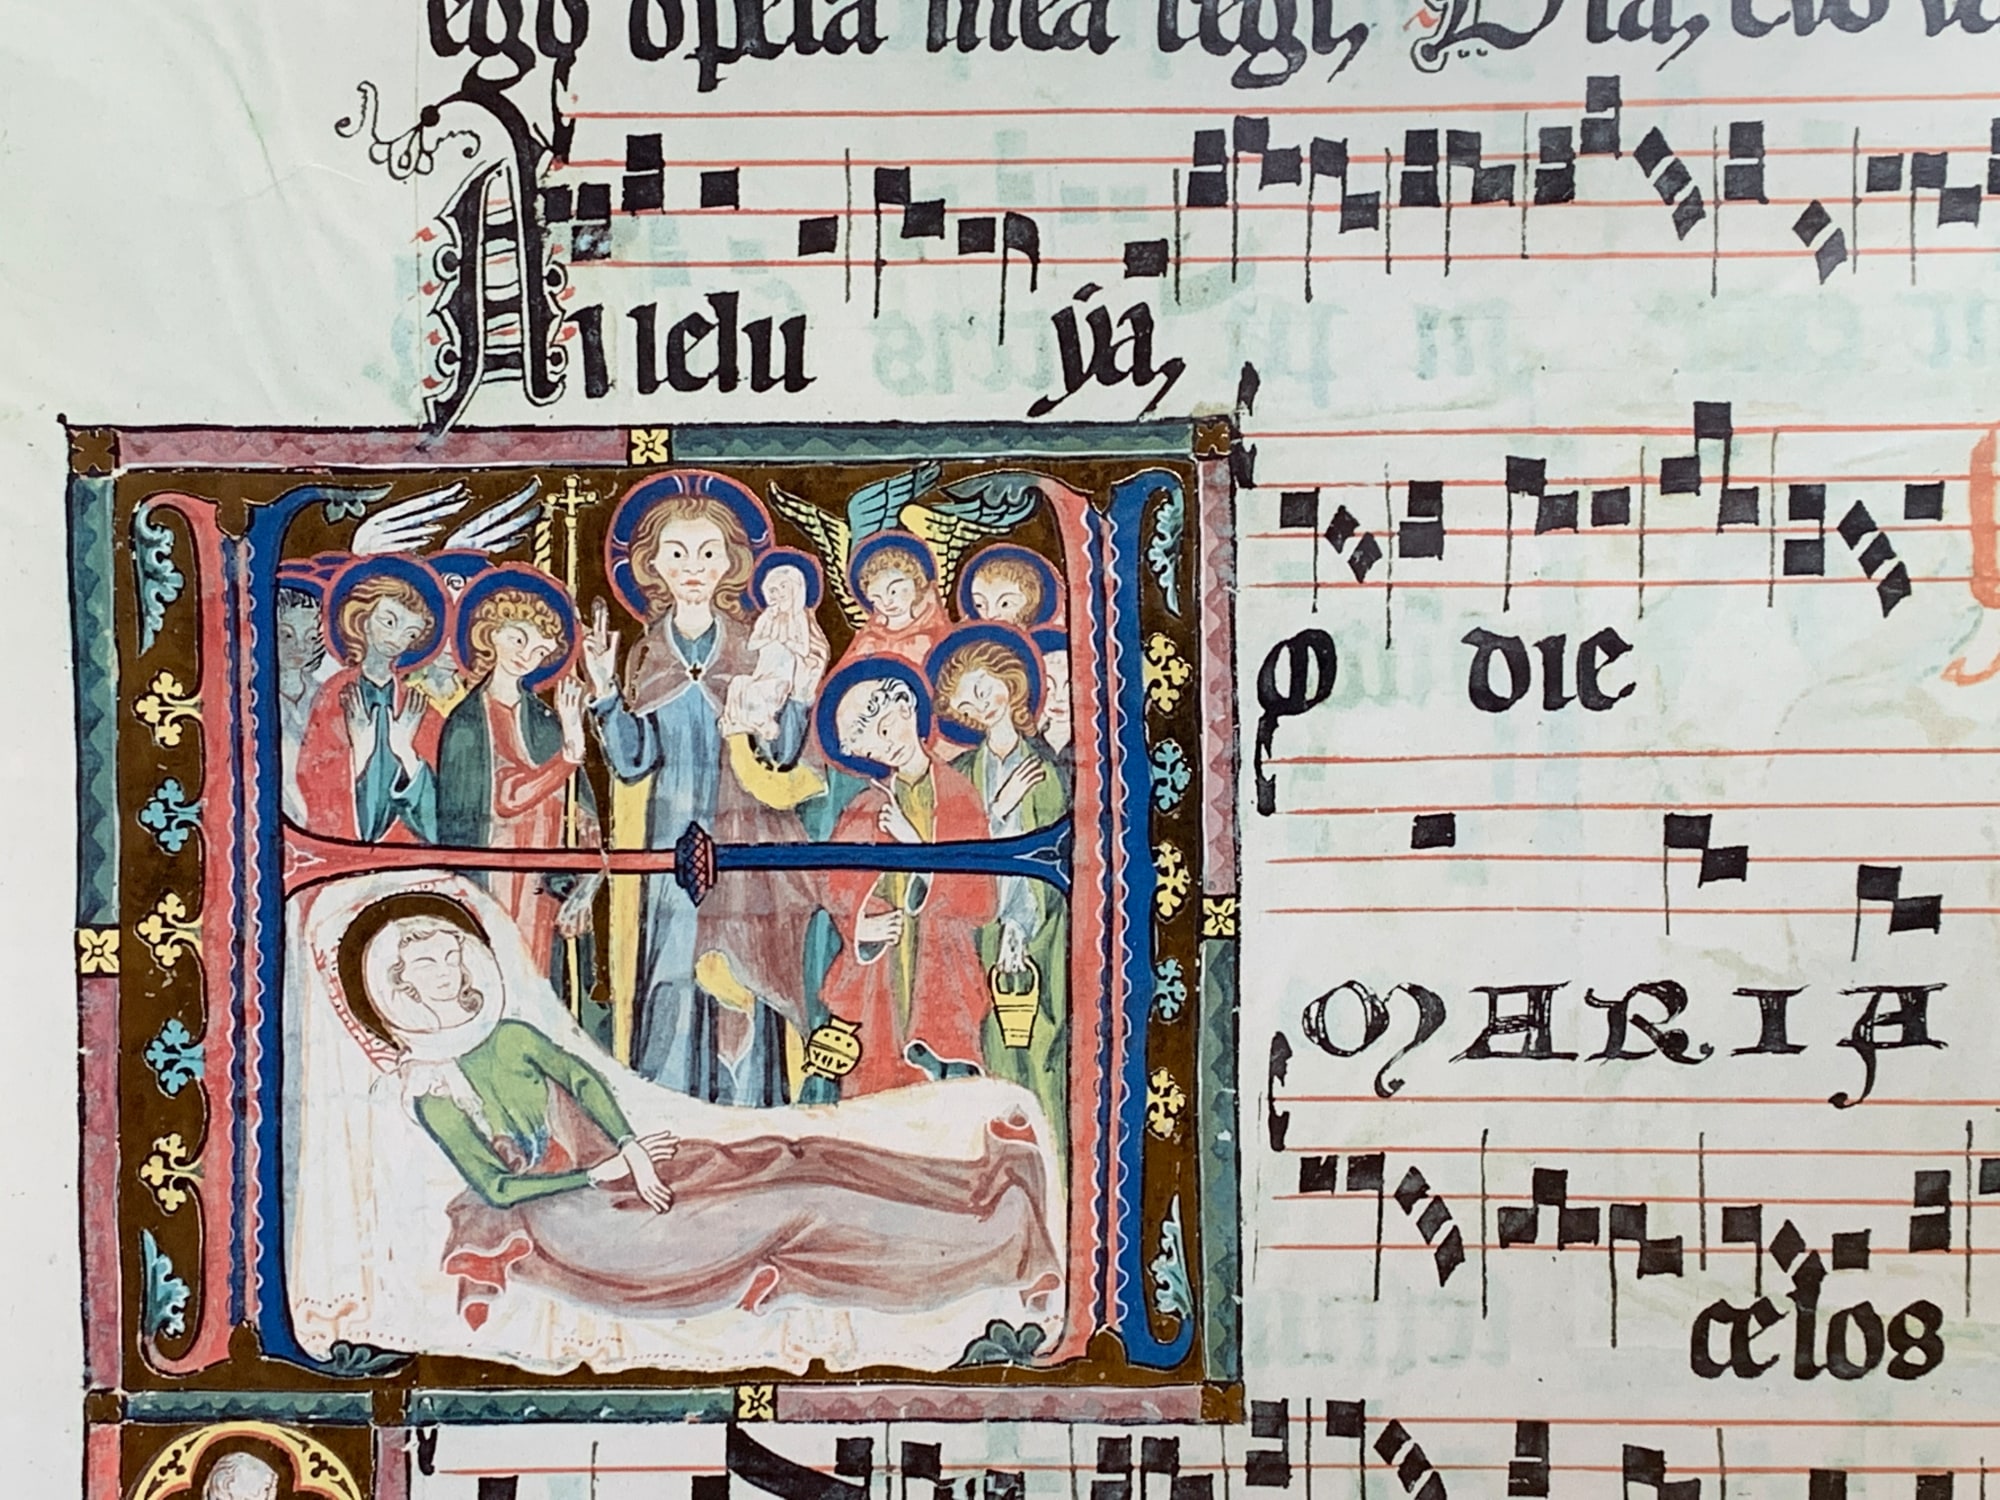 ego opera mea regi,
Al lelu ya,
H o die
MARIA
celos